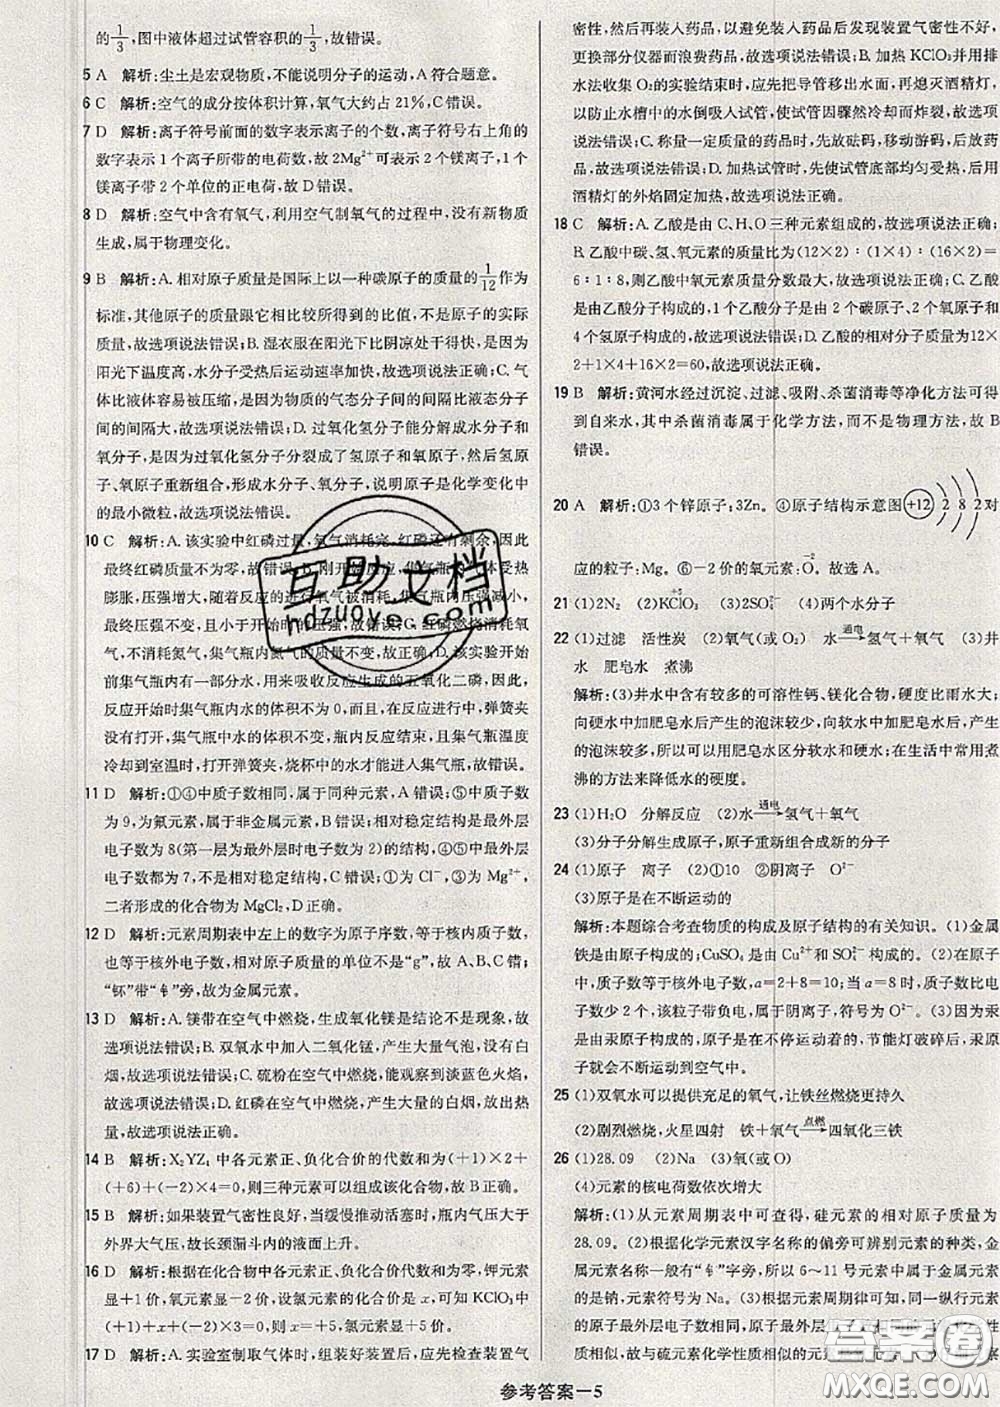 的1/3,图中液体超过试管容积的1/3,故错误。
5 A 解析:尘土是宏观物质,不能说明分子的运动,A符合题意。
6 C 解析:空气的成分按体积计算,氧气大约占21%,C错误。
7 D 解析:离子符号前面的数字表示离子的个数,离子符号右上角的
数字表示1个离子所带的电荷数,故2Mg²⁺可表示2个镁离子,1个
镁离子带2个单位的正电荷,故D错误。
8 D 解析:空气中含有氧气,利用空气制氧气的过程中,没有新物质
生成,属于物理变化。
9 B 解析:A.相对原子质量是国际上以一种碳原子的质量的1/12作为
标准,其他原子的质量跟它相比较所得到的比值,不是原子的实际
质量,故选项说法错误;B.湿衣服在阳光下比阴凉处干得快,是因为
阳光下温度高,水分子受热后运动速率加快,故选项说法正确;C.气
体比液体易被压缩,是因为物质的气态分子间的间隔比液态分子
间的间隔大,故选项说法错误;D.过氧化氢分子能分解成水分子和
氧分子,是过氧化氢分子分裂成了氢原子和氧原子,然后氢原子和氢
子、氧原子重新组合,形成水分子、氧分子,说明原子是化学变化中
的最小微粒,故选项说法错误。
10 C 解析:A.该实验中红磷过量,氧气消耗完,红磷还有剩余,因此
最终红磷质量不为零,故错误;B.刚开始,集气瓶内气体受热
膨胀,压强增大,随着反应的进行氧气消耗,集气瓶内压强减小,
最终压强小于开始时的压强,故错误;C.红磷燃烧消耗氧气
,不消耗氮气,集气瓶内氮气的质量不变,故正确;D.该实验开始
前集气瓶内有一部分水,用来吸收反应生成的五氧化二磷,因此,
反应开始时集气瓶内水的体积不为0,故错误。反应结束,弹簧夹
没有打开,集气瓶中水的体积不变,瓶内反应结束,且集气瓶温度
冷却到室温时,打开弹簧夹,烧杯中的水才能进入集气瓶,故错误。
11 D 解析:①④中质子数相同,属于同种元素,A错误;⑤中质子数
为9,为氟元素,属于非金属元素,B错误;相对稳定结构是最外层
电子数为8(第一层为最外层时电子数为2)的结构,④⑤中最外层
电子数都为7,不是相对稳定结构,C错误;①为Cl⁻,③为Mg²⁺,
二者形成的化合物为MgCl₂,D正确。
12 D 解析:元素周期表中左上的数字为原子序数,等于核内质子数,
也等于核外电子数,相对原子质量的单位不是“g”,故A、B、C错;
“钚”带“钅”旁,故为金属元素。
13 D 解析:A.镁带在空气中燃烧,生成氧化镁是结论不是现象,故
选项说法错误;B.双氧水中加入二氧化锰,产生大量气泡,没有白
烟,故选项说法错误;C.硫粉在空气中燃烧,能观察到淡蓝色火焰,
故选项说法错误;D.红磷在空气中燃烧,产生大量的白烟,放出大
量的热,故选项说法正确。
14 B 解析:X₂YZ₄中各元素正、负化合价的代数和为(+1)×2+
(+6)+(-2)×4=0,则三种元素可以组成该化合物,故B正确。
15 B 解析:如果装置气密性良好,当缓慢推动活塞时,瓶内气压大于
外界大气压,故长颈漏斗内的液面上升。
16 D 解析:根据在化合物中各元素正、负化合价代数和为零,钾元素
显+1价,氧元素显-2价,设氯元素的化合价是x,可知KClO₃中
(+1)+(x)+(-2)×3=0,则x=+5,氯元素显+5价。
17 D 解析:A.实验室制取气体时,组装好装置后,应先检查装置气
密性,然后再装入药品,以避免装入药品后发现装置气密性不好,
更换部分仪器而浪费药品,故选项说法错误;B.加热KClO₃并用排
水法收集O₂的实验结束时,应先把导管移出水面,再熄灭酒精灯,
以防止水槽中的水倒吸入试管,使试管因骤然冷却而炸裂,故选项
说法错误;C.称量一定质量的药品时,先放砝码,移动游码,后放药
品,故选项说法错误;D.加热试管时,先使试管底部均匀受热,后用
酒精灯的外焰固定加热,故选项说法正确。
18 C 解析:A.乙酸是由C、H、O三种元素组成的,故选项说法正确;
B.乙酸中碳、氢、氧元素的质量比为(12×2):(1×4):(16×2)=
6:1:8,则乙酸中氧元素质量分数最大,故选项说法正确;C.乙酸
是由乙酸分子构成的,1个乙酸分子是由2个碳原子、2个氧原子和
4个氢原子构成的,故选项说法错误;D.乙酸的相对分子质量为12×
2+1×4+16×2=60,故选项说法正确。
19 B 解析:黄河水经过沉淀、过滤、吸附、杀菌消毒等净化方法可得
到自来水,其中杀菌消毒属于化学方法,而不是物理方法,故B
错误。
20 A 解析:①3个锌原子:3Zn。④原子结构示意图+12 2 8 2对
应的粒子:Mg。⑥-2价的氧元素:O(-2)。故选A。
21 (1)2N₂ (2)KClO₃(+5) (3)2SO₄²⁻ (4)两个水分子
22 (1)过滤 活性炭 (2)氧气(或O₂) 水—通电→氢气+氧气 (3)井
水 肥皂水 煮沸
解析:(3)井水中含有较多的可溶性钙、镁化合物,硬度比雨水大;
向硬水中加肥皂水后产生的泡沫较少,向软水中加肥皂水后产生
的泡沫较多,所以可以用肥皂水区分软水和硬水;在生活中常用煮
沸的方法来降低水的硬度。
23 (1)H₂O 分解反应 (2)水—通电→氢气+氧气
(3)分子分解生成原子,原子重新组合成新的分子
24 (1)原子 离子 (2)①10 ②阴离子 O²⁻
(3)原子是在不断运动的
解析:本题综合考查物质的构成及原子结构的有关知识。(1)金属
铁是由原子构成的;CuSO₄是由Cu²⁺和SO₄²⁻构成的。(2)在原子
中,质子数等于核外电子数,a=2+8=10;当a=8时,质子数比电
子数少2个,故该粒子带负电,属于阴离子,符号为O²⁻。(3)因为汞
是由汞原子构成的,汞原子是在不停运动着的,节能灯破碎后,汞原
子就会不断运动到空气中。
25 (1)双氧水可以提供充足的氧气,让铁丝燃烧更持久
(2)剧烈燃烧,火星四射 铁+氧气—点燃→四氧化三铁
26 (1)28.09 (2)Na (3)氧(或O)
(4)元素的核电荷数依次增大
解析:(1)从元素周期表中可查得,硅元素的相对原子质量为
28.09。(2)根据化学元素汉字名称的偏旁可辨别元素的种类,金属
元素名称一般有“钅”字旁,所以6~11号元素中属于金属元素的
是的钠,元素符号为Na。(3)根据元素周期律可知,同一纵行元素
的原子最外层电子数相同,因此化学性质相似,
质相似,故与硫元素化学性质相似的元素为氧元素。
参考答案—5
互助文档
hdzuoye.com
答案圈
MXQE.COM